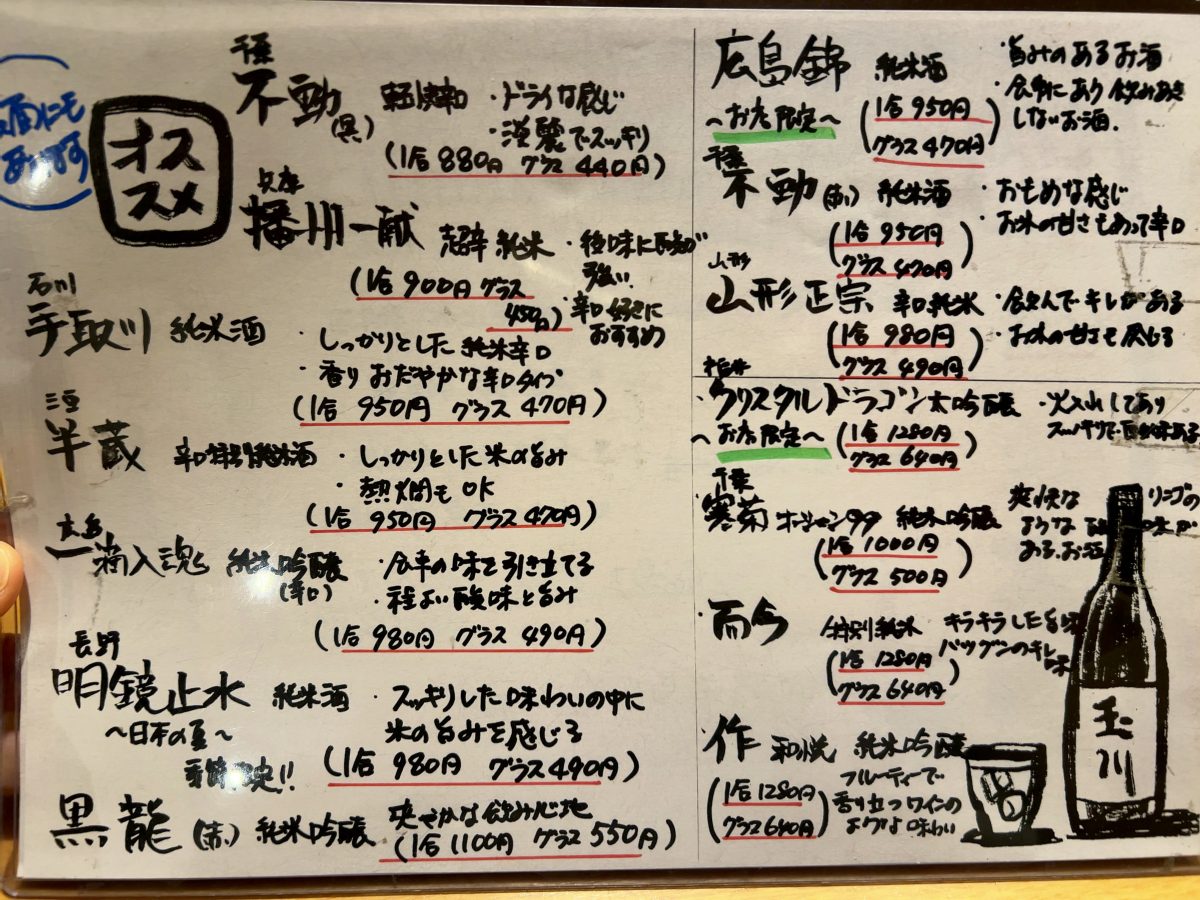 オス
スメ
千葉
不動
(黒)
・ドライな感じ
・淡麗でスッキリ
(1合 880円 グラス 440円)
兵庫
播州一献 超辛 純米
・後味に
強い
・辛口好きに
おすすめ
(1合 900円 グラス
450円)
石川
手取川 純米酒
・しっかりとした純米辛口
・香りおだやかな辛口タイプ
(1合 950円 グラス 470円)
三重
半蔵 辛口特別純米酒
・しっかりとした米の旨み
・熱燗もOK
(1合 950円 グラス 470円)
一滴入魂 純米吟醸
(辛口)
・広島の味を引き立てる
・程よい酸味と旨み
(1合 980円 グラス 490円)
長野
明鏡止水 純米酒
〜日本の夏〜
・スッキリした味わいの中に
米の旨みを感じる
(1合 980円 グラス 490円)
黒龍 (赤) 純米吟醸
爽やかな飲み心地
(1合 1100円 グラス 550円)
広島錦 純米酒
〜お店限定〜
(1合 950円
グラス 470円)
・旨みのあるお酒
飲みあき
しないお酒.
千葉
不動 (赤) 純米酒
(1合 950円
グラス 470円)
・おもめな感じ
・お米の甘さもあって辛口
山形
山形正宗 辛口純米
(1合 980円
グラス 490円)
・飲んでキレがある
・お米の甘さも感じる
福井
・クリスタルドラゴン 大吟醸
〜お店限定〜
(1合 1280円
グラス 640円)
・火入れしてあり
千葉
・寒菊 オーシャン99 純米吟醸
(1合 1000円
グラス 500円)
爽快な リンゴの
ような 味が
ある、お酒
・而今 特別純米
(1合 1280円
グラス 640円)
キラキラした旨味
バツグンのキレ
味
・作 和悦 純米吟醸
(1合 1280円
グラス 640円)
フルーティーで
香り立つワインの
ような味わい
玉川